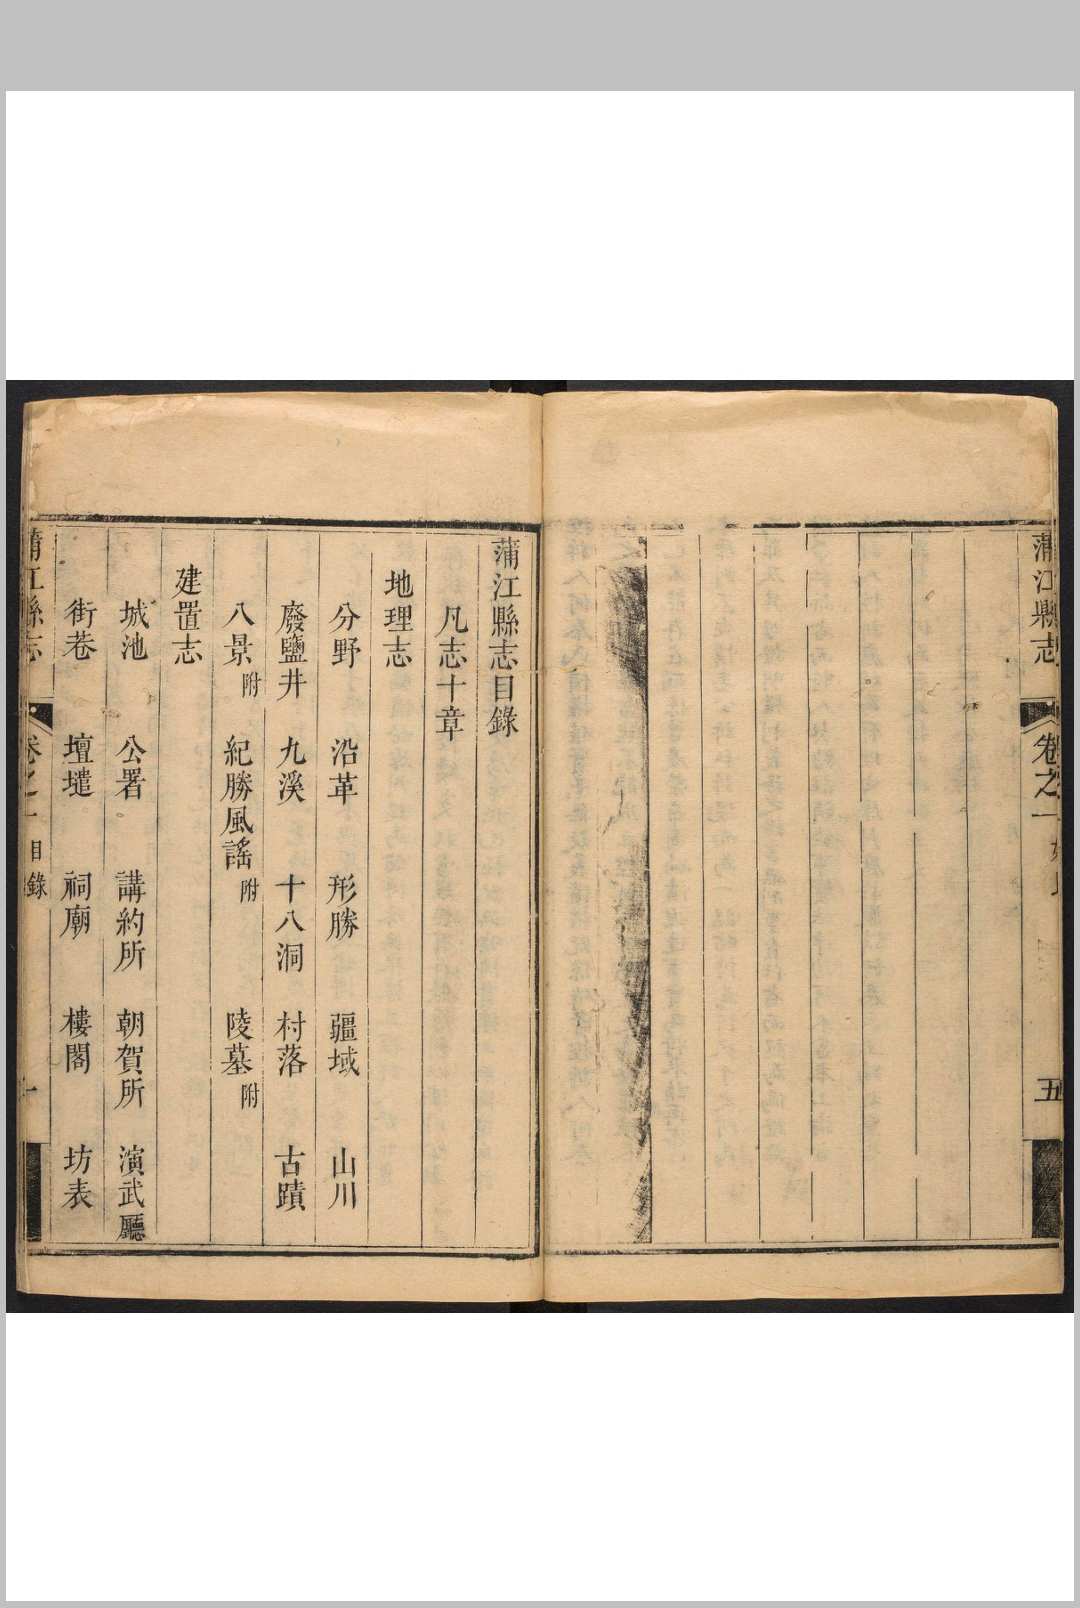 蒲江縣志
卷之一
五
蒲江縣志目錄
凡志十章
地理志
分野 沿革 形勝 疆域 山川
廢鹽井 九溪 十八洞 村落 古蹟
八景附 紀勝風謠附 陵墓附
建置志
城池 公署 講約所 朝賀所 演武廳
街巷 壇壝 祠廟 樓閣 坊表
蒲江縣志
卷之一
目錄
一